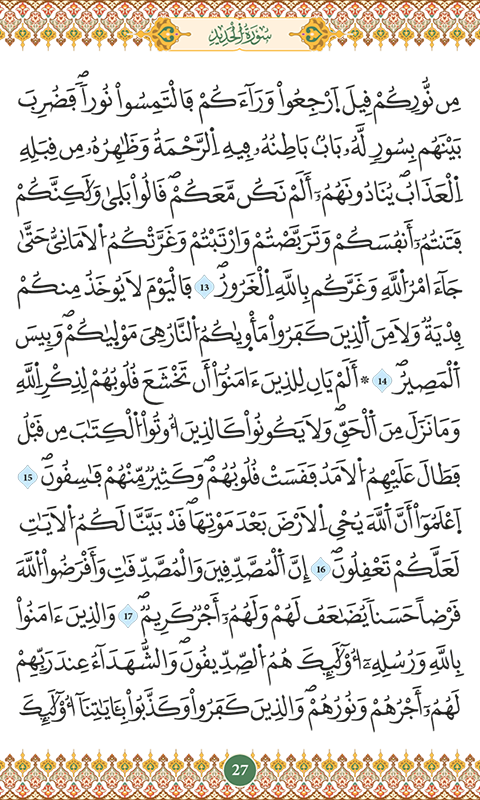 سُورَةُ الْحَدِيدِ
مِن نُّورِكُمْ قِيلَ اَ۪رْجِعُواْ وَرَآءَكُمْ فَالْتَمِسُواْ نُوراٗۖ فَضُرِبَ
بَيْنَهُم بِسُورٖ لَّهُۥ بَابُۢ بَاطِنُهُۥ فِيهِ اِ۬لرَّحْمَةُ وَظَٰهِرُهُۥ مِن قِبَلِهِ
اِ۬لْعَذَابُۖ يُنَادُونَهُمُۥٓ أَلَمْ نَكُن مَّعَكُمْۖ قَالُواْ بَلَىٰ وَلَٰكِنَّكُمْ
فَتَنتُمُۥٓ أَنفُسَكُمْ وَتَرَبَّصْتُمْ وَارْتَبْتُمْ وَغَرَّتْكُمُ اُ۬لَامَانِيُّ حَتَّىٰ
جَآءَ امْرُ اُ۬للَّهِ وَغَرَّكُم بِاللَّهِ اِ۬لْغَرُورُۖ 13 فَالْيَوْمَ لَا يُوخَذُ مِنكُمْ
فِدْيَةٞ وَلَا مِنَ اَ۬لذِينَ كَفَرُواْ مَأْوِيٰكُمُ اُ۬لنَّارُ هِيَ مَوْلِيٰكُمْۖ وَبِيسَ
اَ۬لْمَصِيرُۖ 14 ۞ أَلَمْ يَانِ لِلذِينَ ءَامَنُوٓاْ أَن تَخْشَعَ قُلُوبُهُمْ لِذِكْرِ اِ۬للَّهِ
وَمَا نَزَلَ مِنَ اَ۬لْحَقِّۖ وَلَا يَكُونُواْ كَالذِينَ أُوتُواْ اُ۬لْكِتَٰبَ مِن قَبْلُ
فَطَالَ عَلَيْهِمُ اُ۬لَامَدُ فَقَسَتْ قُلُوبُهُمْۖ وَكَثِيرٞ مِّنْهُمْ فَٰسِقُونَۖ 15
اَ۪عْلَمُوٓاْ أَنَّ اَ۬للَّهَ يُحْيِ اِ۬لَارْضَ بَعْدَ مَوْتِهَاۖ قَدْ بَيَّنَّا لَكُمُ اُ۬لَايَٰتِ
لَعَلَّكُمْ تَعْقِلُونَۖ 16 إِنَّ اَ۬لْمُصَّدِّقِينَ وَالْمُصَّدِّقَٰتِ وَأَقْرَضُواْ اُ۬للَّهَ
قَرْضاً حَسَناٗ يُضَٰعَفُ لَهُمْ وَلَهُمُۥٓ أَجْرٞ كَرِيمٞۖ 17 وَالذِينَ ءَامَنُواْ
بِاللَّهِ وَرُسُلِهِۦٓ أُوْلَٰٓئِكَ هُمُ اُ۬لصِّدِّيقُونَۖ وَالشُّهَدَآءُ عِندَ رَبِّهِمْ
لَهُمُۥٓ أَجْرُهُمْ وَنُورُهُمْۖ وَالذِينَ كَفَرُواْ وَكَذَّبُواْ بِـَٔايَٰتِنَآ أُوْلَٰٓئِكَ
27